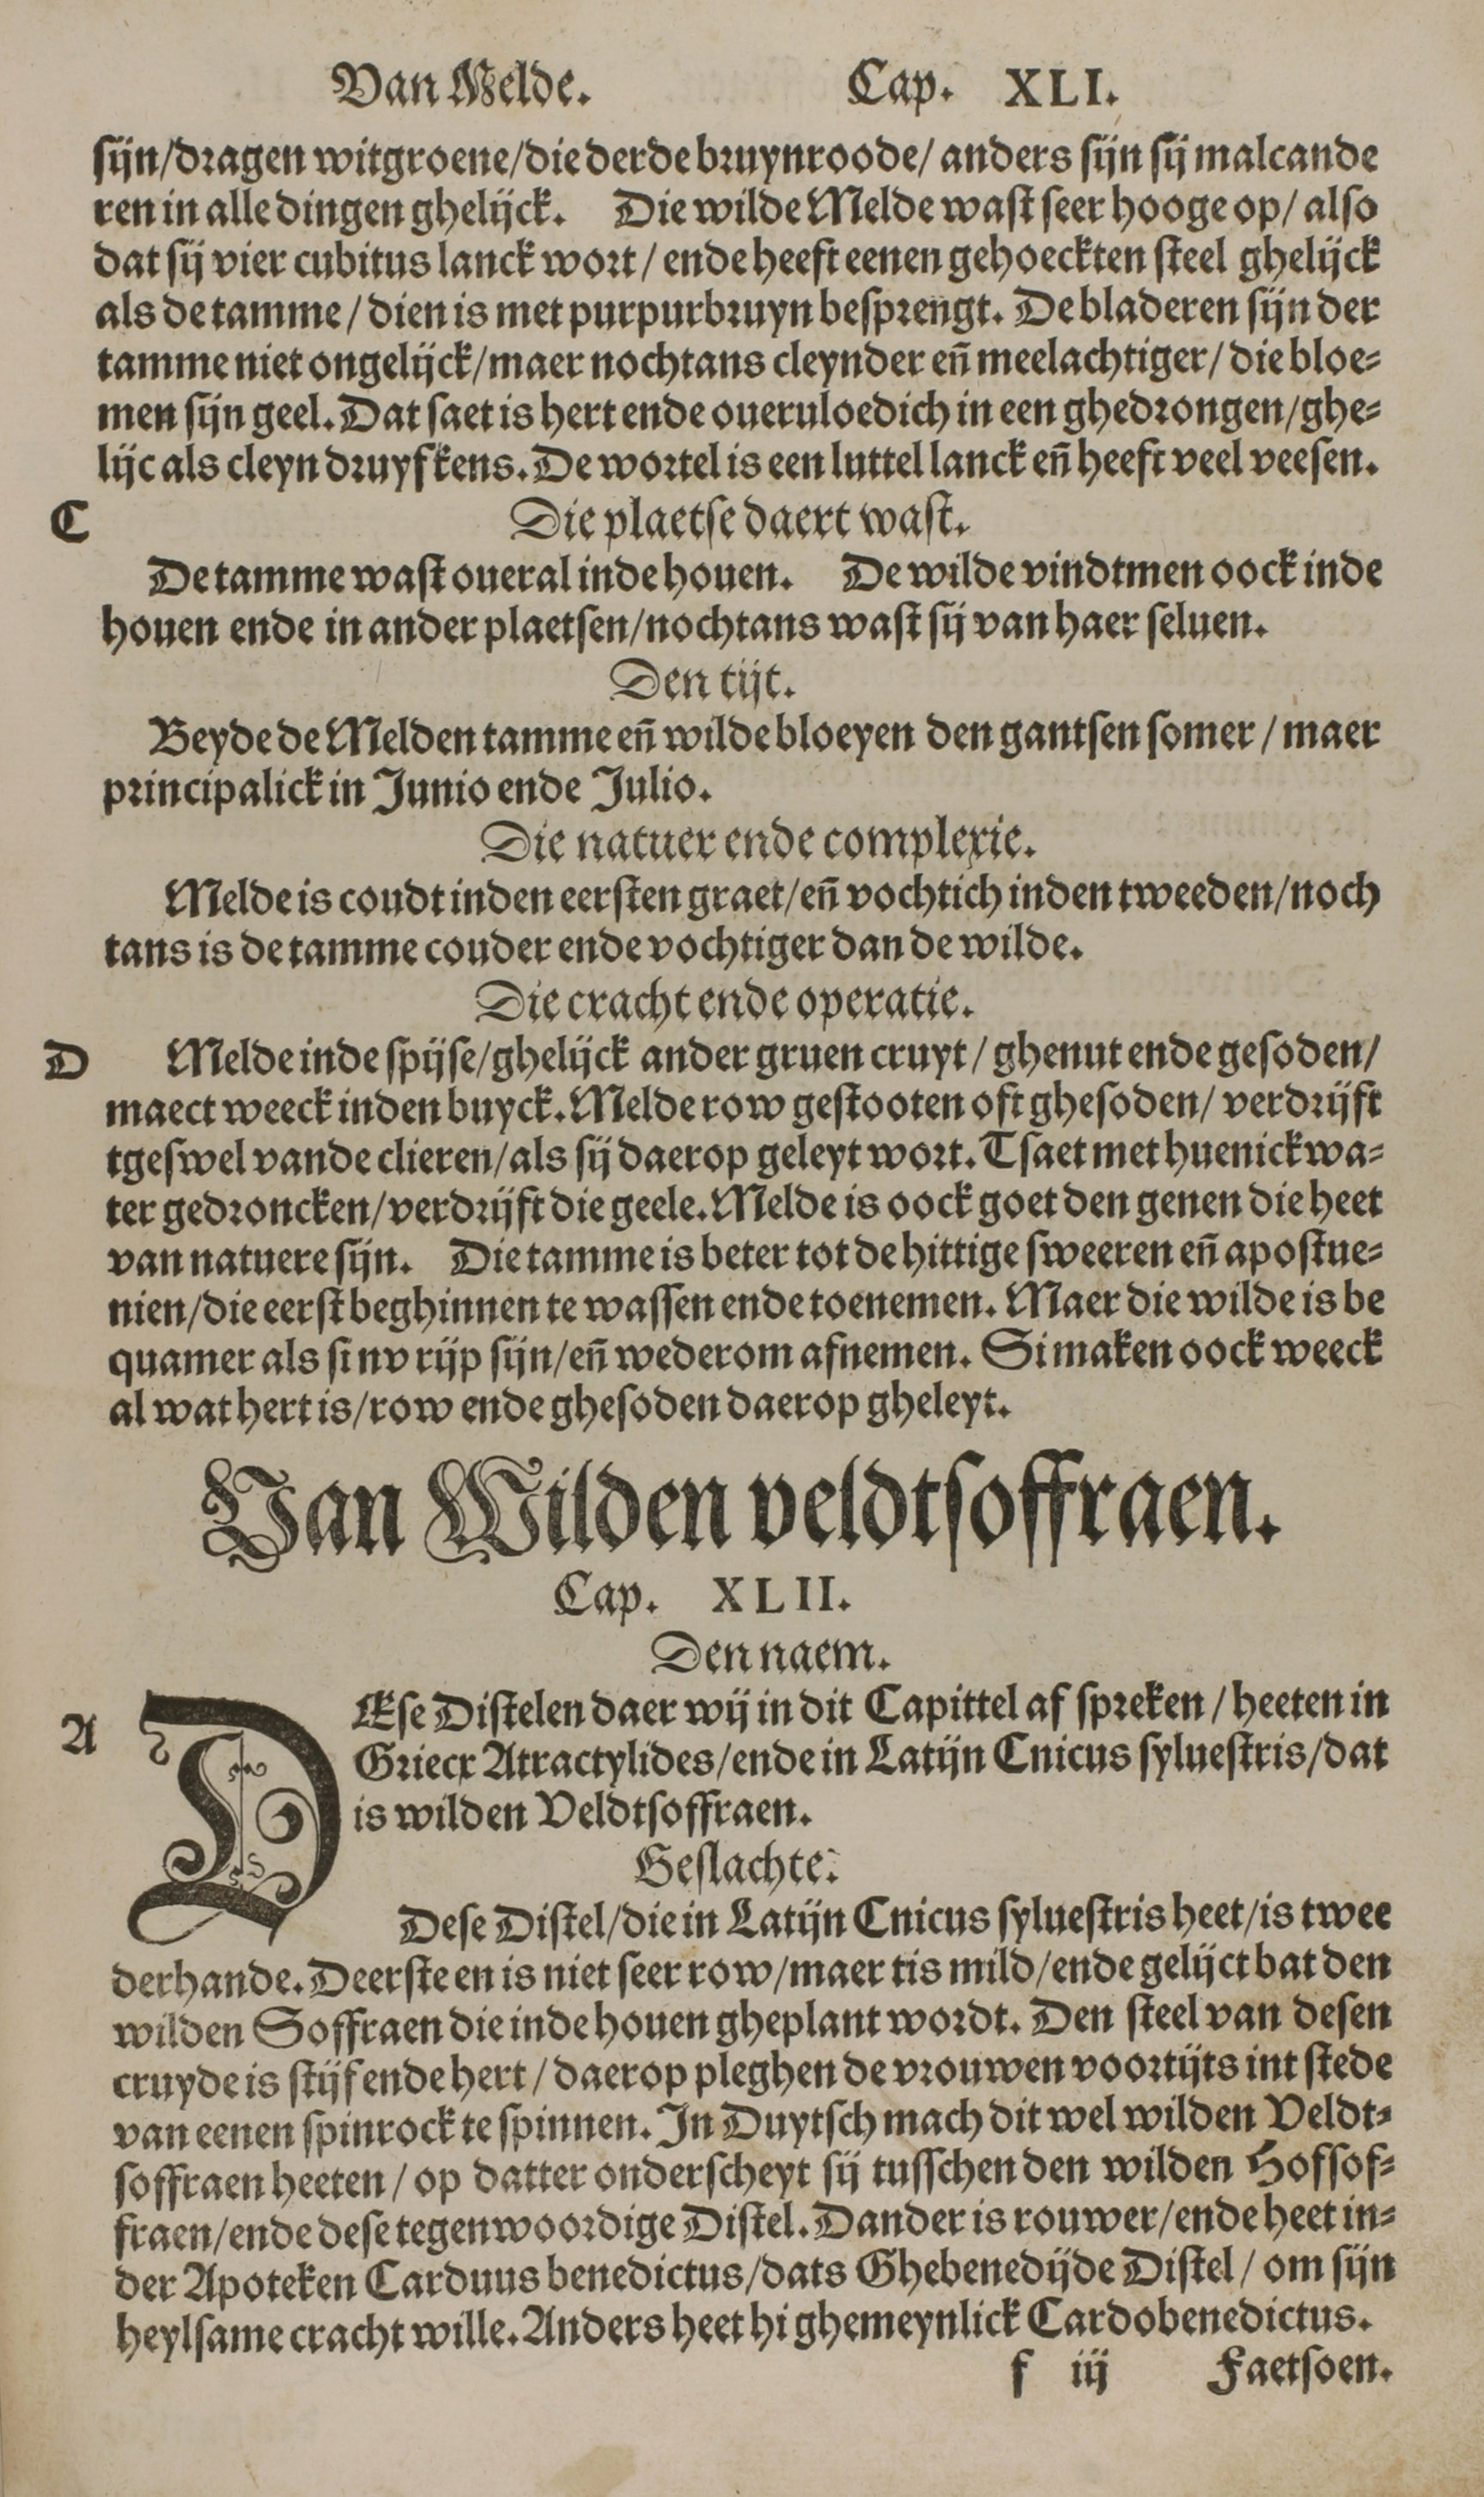 Van Melde. Cap. XLI.
sijn/dragen witgroene/die derde bruynroode/ anders sijn sij malcande
ren in alle dingen ghelijck. Die wilde Melde wast seer hooge op/ also
dat sij vier cubitus lanck wort / ende heeft eenen gehoeckten steel ghelijck
als de tamme / dien is met purpurbruyn besprengt. De bladeren sijn der
tamme niet ongelijck/maer nochtans cleynder en̄ meelachtiger/ die bloe-
men sijn geel. Dat saet is hert ende oueruloedich in een ghedrongen/ghe-
lijc als cleyn druyfkens. De wortel is een luttel lanck en̄ heeft veel veesen.
C Die plaetse daert wast.
De tamme wast oueral inde houen. De wilde vindtmen oock inde
houen ende in ander plaetsen/nochtans wast sij van haer seluen.
Den tijt.
Beyde de Melden tamme en̄ wilde bloeyen den gantsen somer / maer
principalick in Junio ende Julio.
Die natuer ende complexie.
Melde is coudt inden eersten graet/en̄ vochtich inden tweeden/noch
tans is de tamme couder ende vochtiger dan de wilde.
Die cracht ende operatie.
D Melde inde spijse/ghelijck ander gruen cruyt / ghenut ende gesoden/
maect weeck inden buyck. Melde row gestooten oft ghesoden/ verdrijft
tgeswel vande clieren/als sij daerop geleyt wort. Tsaet met huenickwa-
ter gedroncken/verdrijft die geele. Melde is oock goet den genen die heet
van natuere sijn. Die tamme is beter tot de hittige sweeren en̄ apostue-
nien/die eerst beghinnen te wassen ende toenemen. Maer die wilde is be
quamer als si nv rijp sijn/en̄ wederom afnemen. Si maken oock weeck
al wat hert is/row ende ghesoden daerop gheleyt.
Van Wilden veldtsoffraen.
Cap. XLII.
Den naem.
A DEse Distelen daer wij in dit Capittel af spreken / heeten in
Griecx Atractylides/ende in Latijn Cnicus syluestris/dat
is wilden Veldtsoffraen.
Geslachte.
Dese Distel/die in Latijn Cnicus syluestris heet/is twee
derhande. Deerste en is niet seer row/maer tis mild/ende gelijct bat den
wilden Soffraen die inde houen gheplant wordt. Den steel van desen
cruyde is stijf ende hert / daerop pleghen de vrouwen voortijts int stede
van eenen spinrock te spinnen. In Duytsch mach dit wel wilden Veldt-
soffraen heeten / op datter onderscheyt sij tusschen den wilden Hofsof-
fraen/ende dese tegenwoordige Distel. Dander is rouwer/ende heet in-
der Apoteken Carduus benedictus/dats Ghebenedijde Distel / om sijn
heylsame cracht wille. Anders heet hi ghemeynlick Cardobenedictus.
f iij Faetsoen.